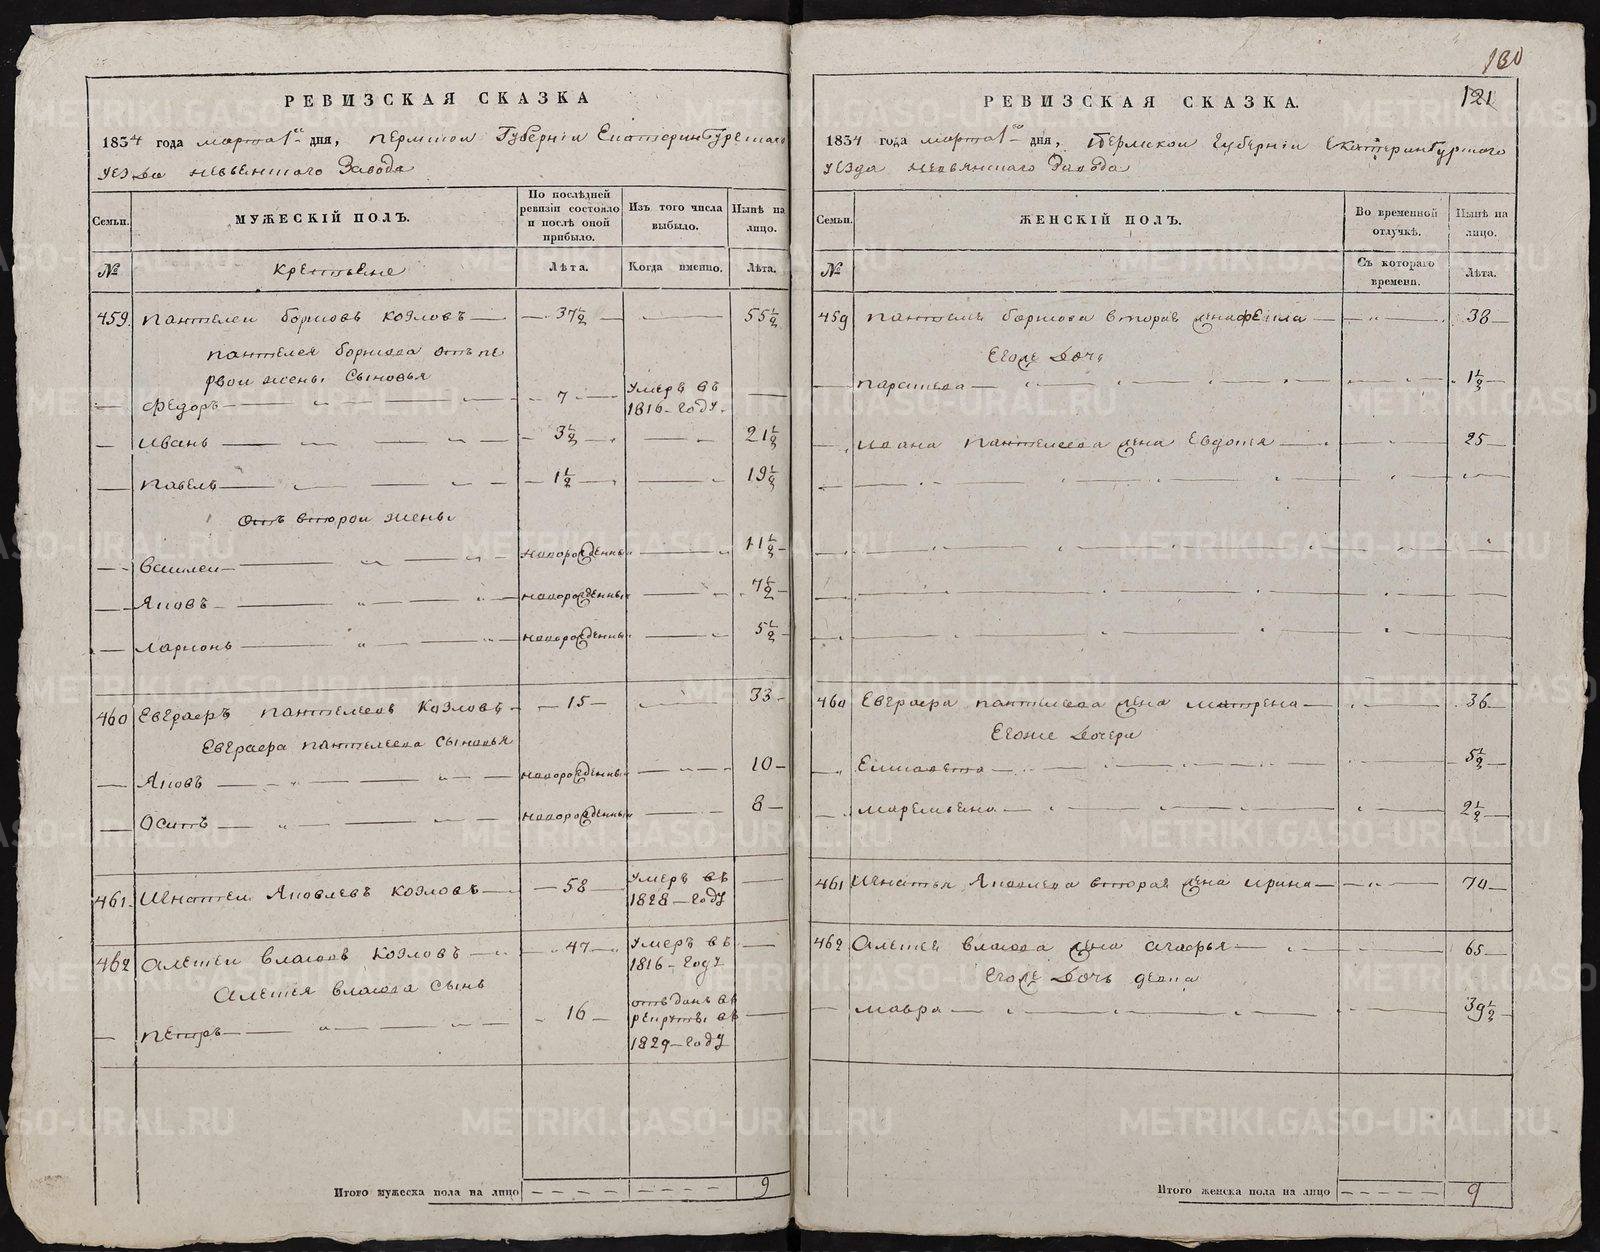 180
РЕВИЗСКАЯ СКАЗКА
1834 года марта 1го дня, Пермской Губернiи Екатеринбургскаго
уезда невьенскаго Завода
Семьи.
МУЖЕСКІЙ ПОЛЪ.
По послѣдней ревизіи состояло и послѣ оной прибыло.
Изъ того числа выбыло.
Нынѣ на лицо.
№
крестьене
Лѣта.
Когда именно.
Лѣта.
459. пантелеи борисовъ козловъ — 37½ — 55½
пантелея борисова отъ пе
рвои жены сыновья
Федоръ — 7 — Умеръ въ 1816 году.
Иванъ — 3½ — 21½
павелъ — 1½ — 19½
отъ второи жены
василеи — новорожденныи — 11½
Яковъ — новорожденныи — 7½
ларионъ — новорожденныи — 5½
460 Евграфъ пантелеевъ козловъ — 15 — 33
Евграфа пантелеева сыновья
Яковъ — новорожденныи — 10
Осипъ — новорожденныи — 8
461. Игнатеи Яковлевъ козловъ — 58 — Умеръ въ 1828 году
462 алексеи власовъ козловъ — 47 — Умеръ въ 1816 году
алексея власова сынъ
петръ — 16 — отъданъ въ рекруты въ 1829 году
Итого мужеска пола на лицо 9
РЕВИЗСКАЯ СКАЗКА.
121
1834 года марта 1го дня, Пермскои губернiи Екатеринбургскаго
уезда невьянскаго Завода
Семьи.
ЖЕНСКІЙ ПОЛЪ.
Во временной отлучкѣ.
Нынѣ на лицо.
№
Съ котораго времени.
Лѣта.
459 пантелея борисова вторая жена — 38
Егоже дочь
парасковa — 1½
ивана пантелеева жена Евдотья — 25
460 Евграфа пантелеева жена матрена — 36
Егоже дочери
Елисавета — 5½
маремьена — 2½
461 Игнатья Яковлева вторая жена ирина — 70
462 алексея власова жена — 65
Егоже дочь девка
мавра — 39½
Итого женска пола на лицо 9
METRIKI.GASO-URAL.RU